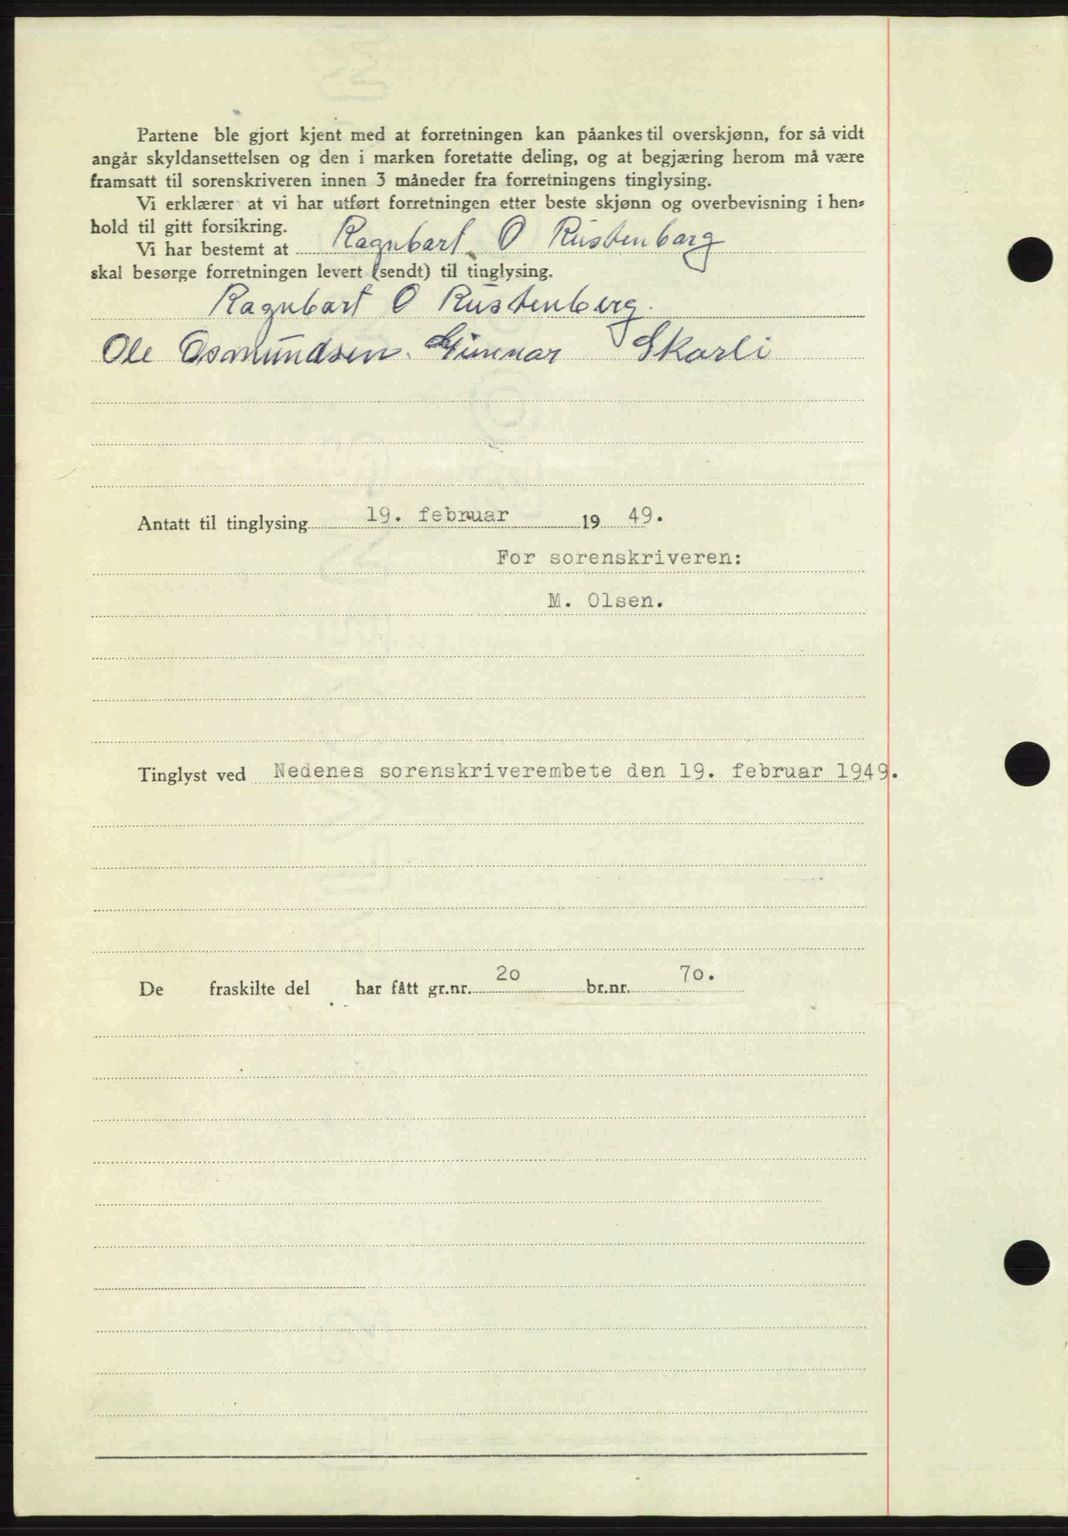 Partene ble gjort kjent med at forretningen kan påankes til overskjønn, for så vidt
angår skyldansettelsen og den i marken foretatte deling, og at begjæring herom må være
framsatt til sorenskriveren innen 3 måneder fra forretningens tinglysing.
Vi erklærer at vi har utført forretningen etter beste skjønn og overbevisning i hen-
hold til gitt forsikring.
Vi har bestemt at Ragnbart O Rustenberg
skal besørge forretningen levert (sendt) til tinglysing.
Ragnbart O Rustenberg.
Ole Osmundsen. Gunnar Skarli
Antatt til tinglysing 19. februar 19 49.
For sorenskriveren:
M. Olsen.
Tinglyst ved Nedenes sorenskriverembete den 19. februar 1949.
De fraskilte del har fått gr.nr. 20 br.nr. 70.